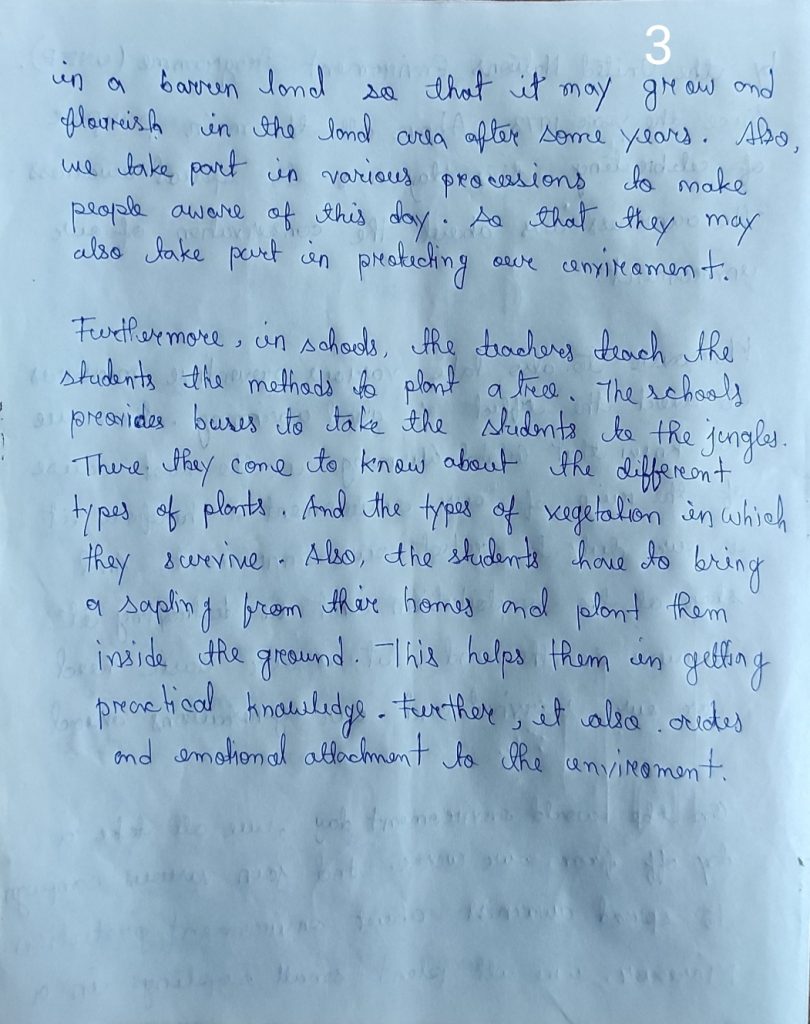 3
in a barren land so that it may grow and
flourish in the land area after some years. Also,
we take part in various processions to make
people aware of this day. So that they may
also take part in protecting our envirement.
Furthermore, in schools, the teachers teach the
students the methods to plant a tree. The schools
provides buses to take the students to the jungles.
There they come to know about the different
types of plants. And the types of vegetation in which
they survive. Also, the students have to bring
a sapling from their homes and plant them
inside the ground. This helps them in getting
practical knowledge. Further, it also
and emotional attachment to the envirement.